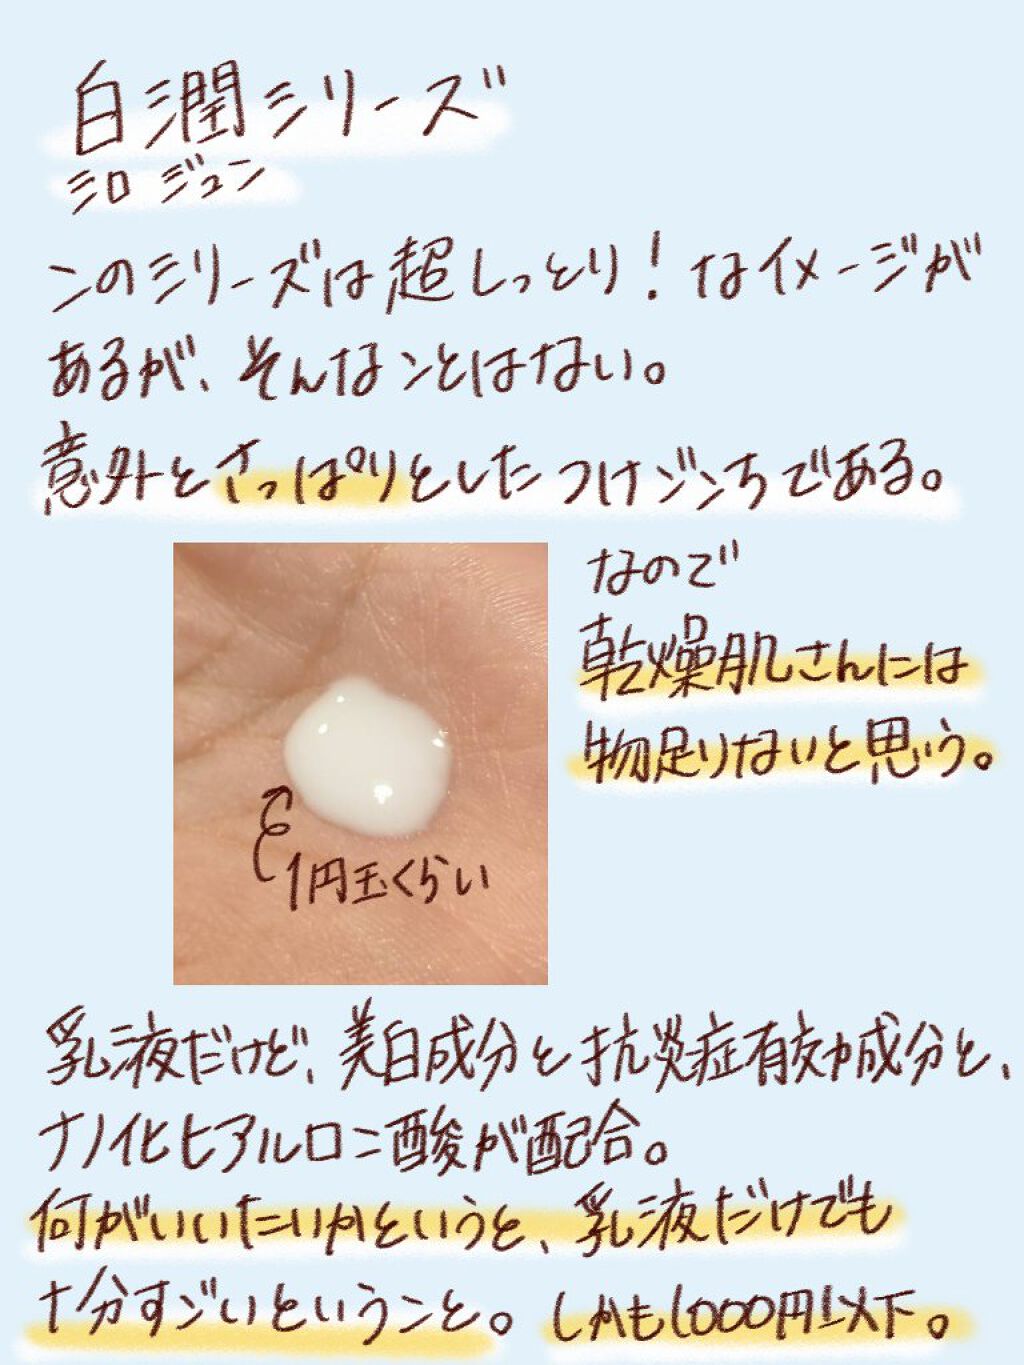 白潤シリーズ
シロジュン
このシリーズは超しっとり！なイメージが
あるが、そんなことはない。
意外とさっぱりとしたつけごこちである。
なので
乾燥肌さんには
物足りないと思う。
1円玉くらい
乳液だけど、美白成分と抗炎症有効成分と、
ナノ化ヒアルロニ酸が配合。
何がいいたいかというと、乳液だけでも
十分すごいということ。しかも1000円以下。